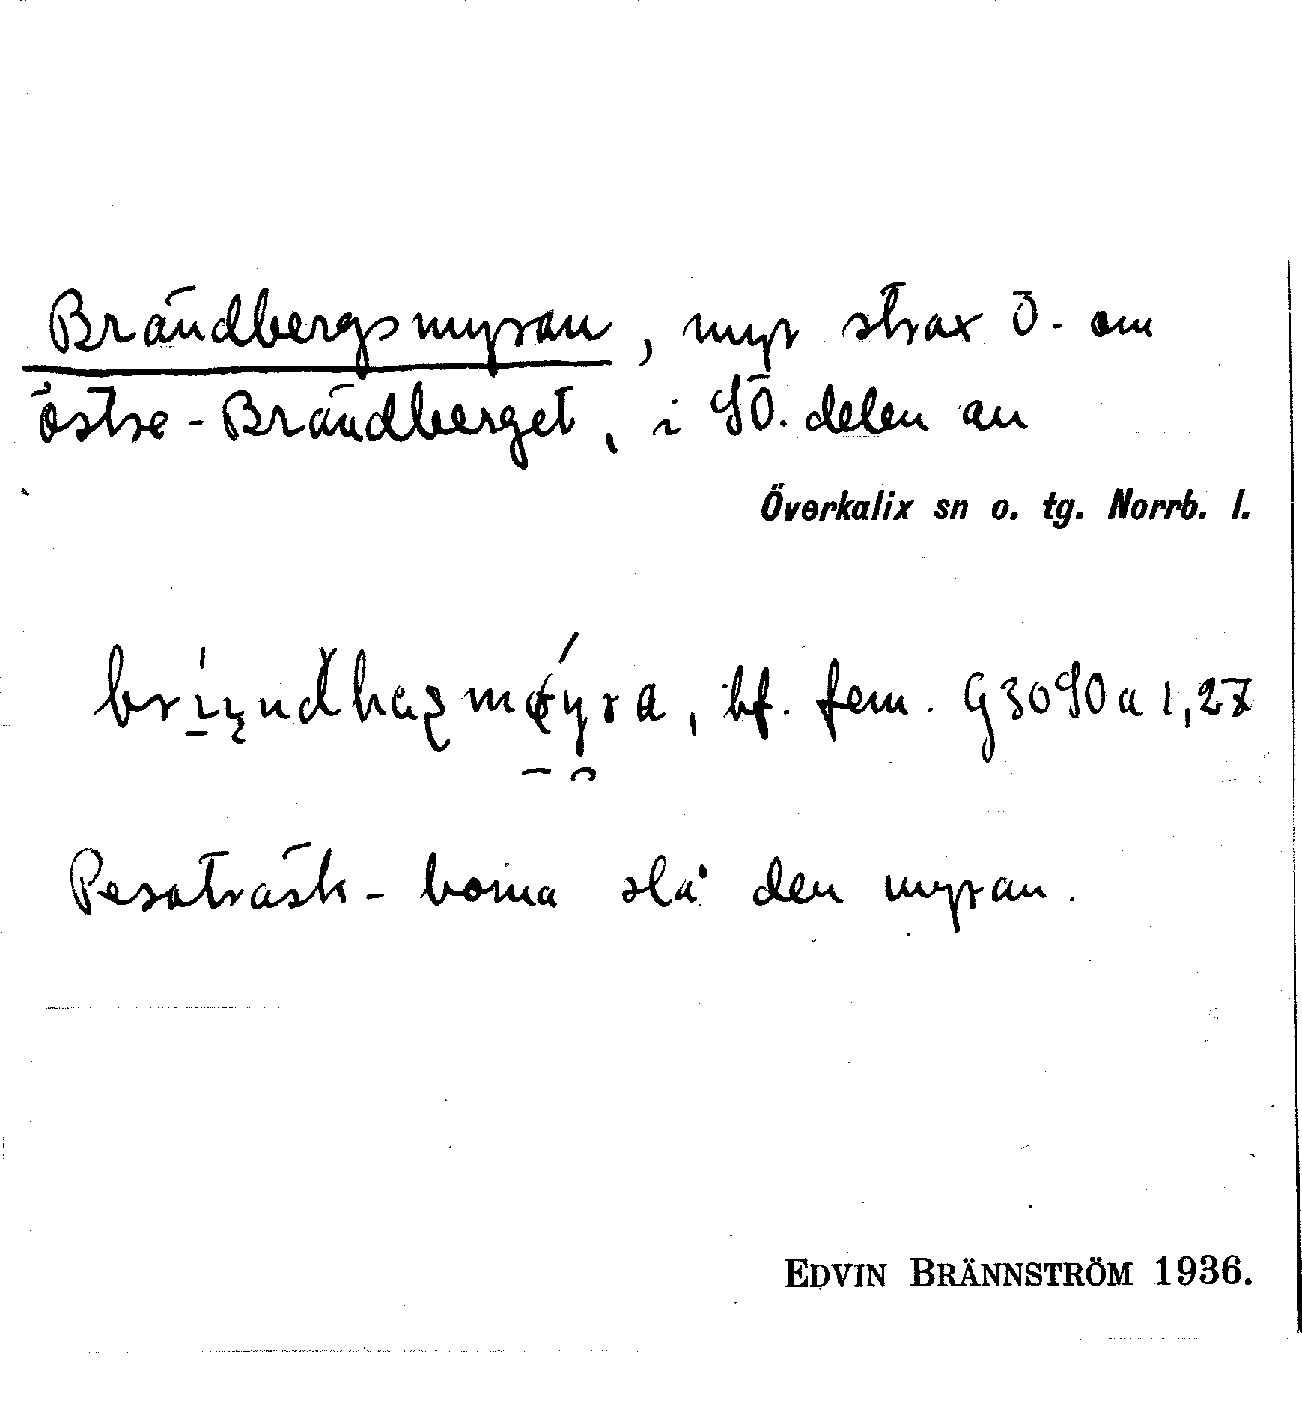 Brändbergsmyran, myr strax Ö. om
östre-Brändberget, i SÖ. delen av
Överkalix sn o. tg. Norrb. l.
bf. fem. G30SO a 1,27
Pesoträsk-borna slå den myran.
EDVIN BRÄNNSTRÖM 1936.